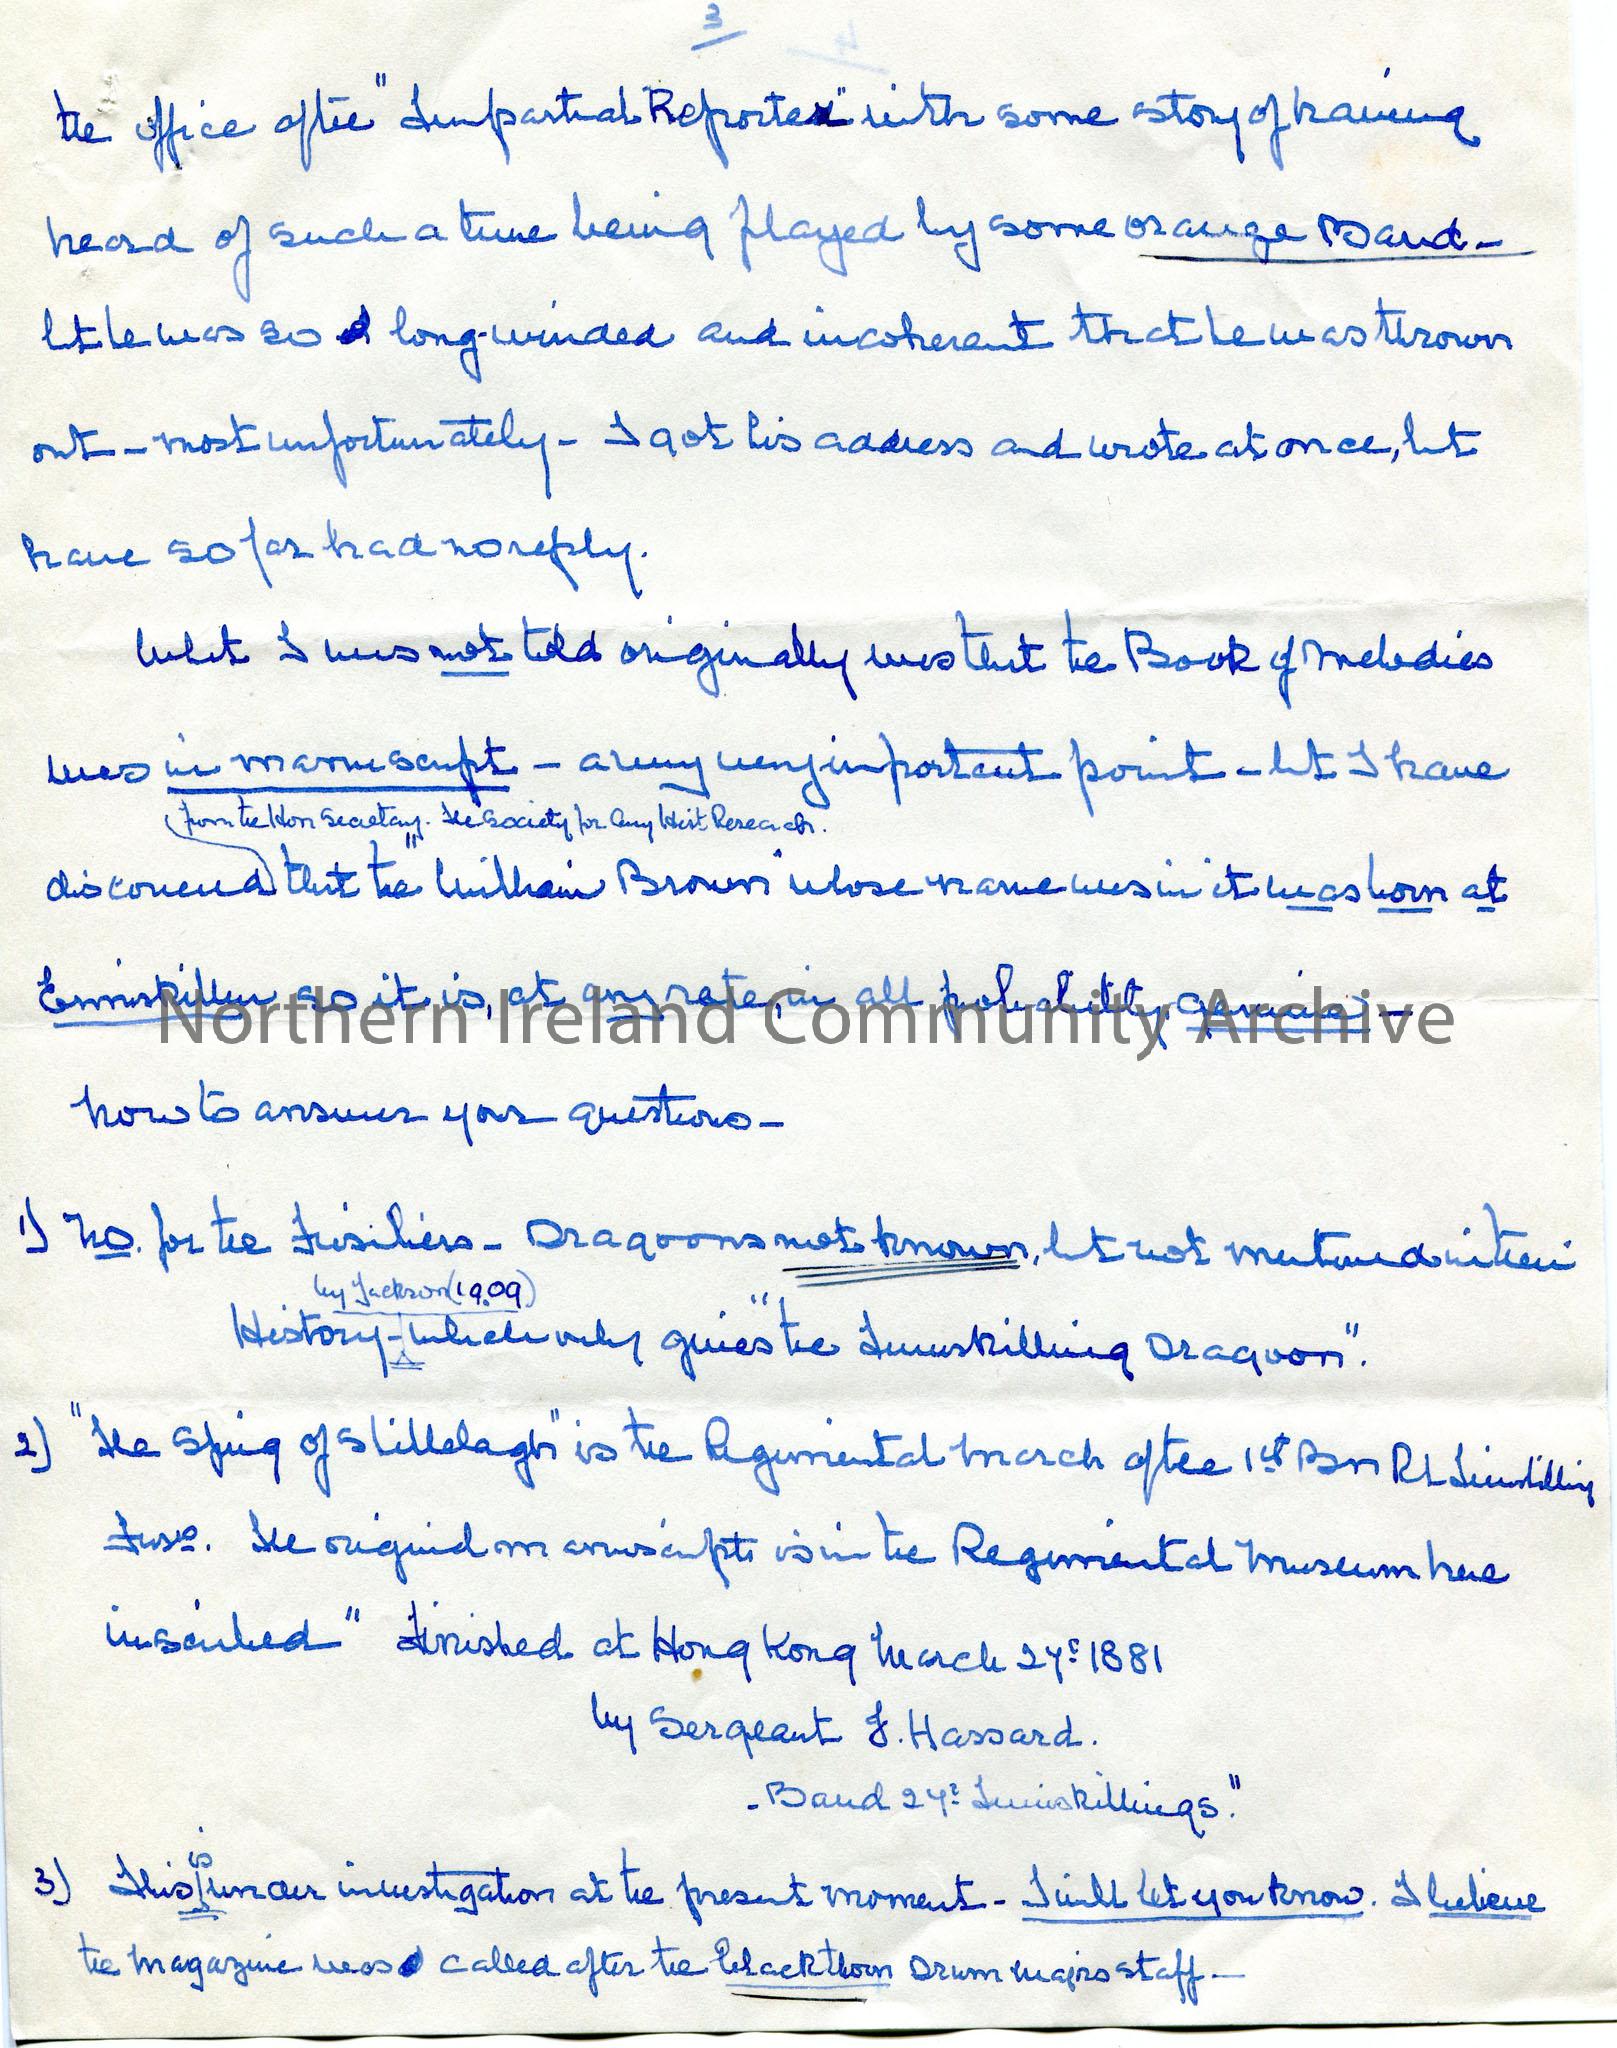 3
the office of the "Impartial Reporter" with some story of having
heard of such a tune being played by some orange Band -
but he was so long-winded and incoherent that he was thrown
out - most unfortunately - I got his address and wrote at once, but
have so far had no reply.
What I was not told originally was that the Book of Melodies
was in manuscript - a very very important point - but I have
(from the Hon Secretary. The Society for Army Hist Research.
discovered that the "William Brown" whose name was in it was born at
Enniskillen so it is, at any rate, in all probability, genuine -
Northern Ireland Community Archive
Now to answer your questions -
1) No. for the Fusiliers - Dragoons not known, but not mentioned in their
by Jackson (1909)
History - which only gives "the Inniskilling Dragoon".
2) "The Sprig of Shillelagh" is the Regimental March of the 1st Bn Rl Inniskilling
Fusrs. The original manuscript is in the Regimental Museum here
inscribed " Finished at Hong Kong March 27th 1881
by Sergeant F. Hassard.
- Band 27th Inniskillings."
is
3) This under investigation at the present moment - I will let you know. I believe
the Magazine was called after the Blackthorn Drum Majors staff -